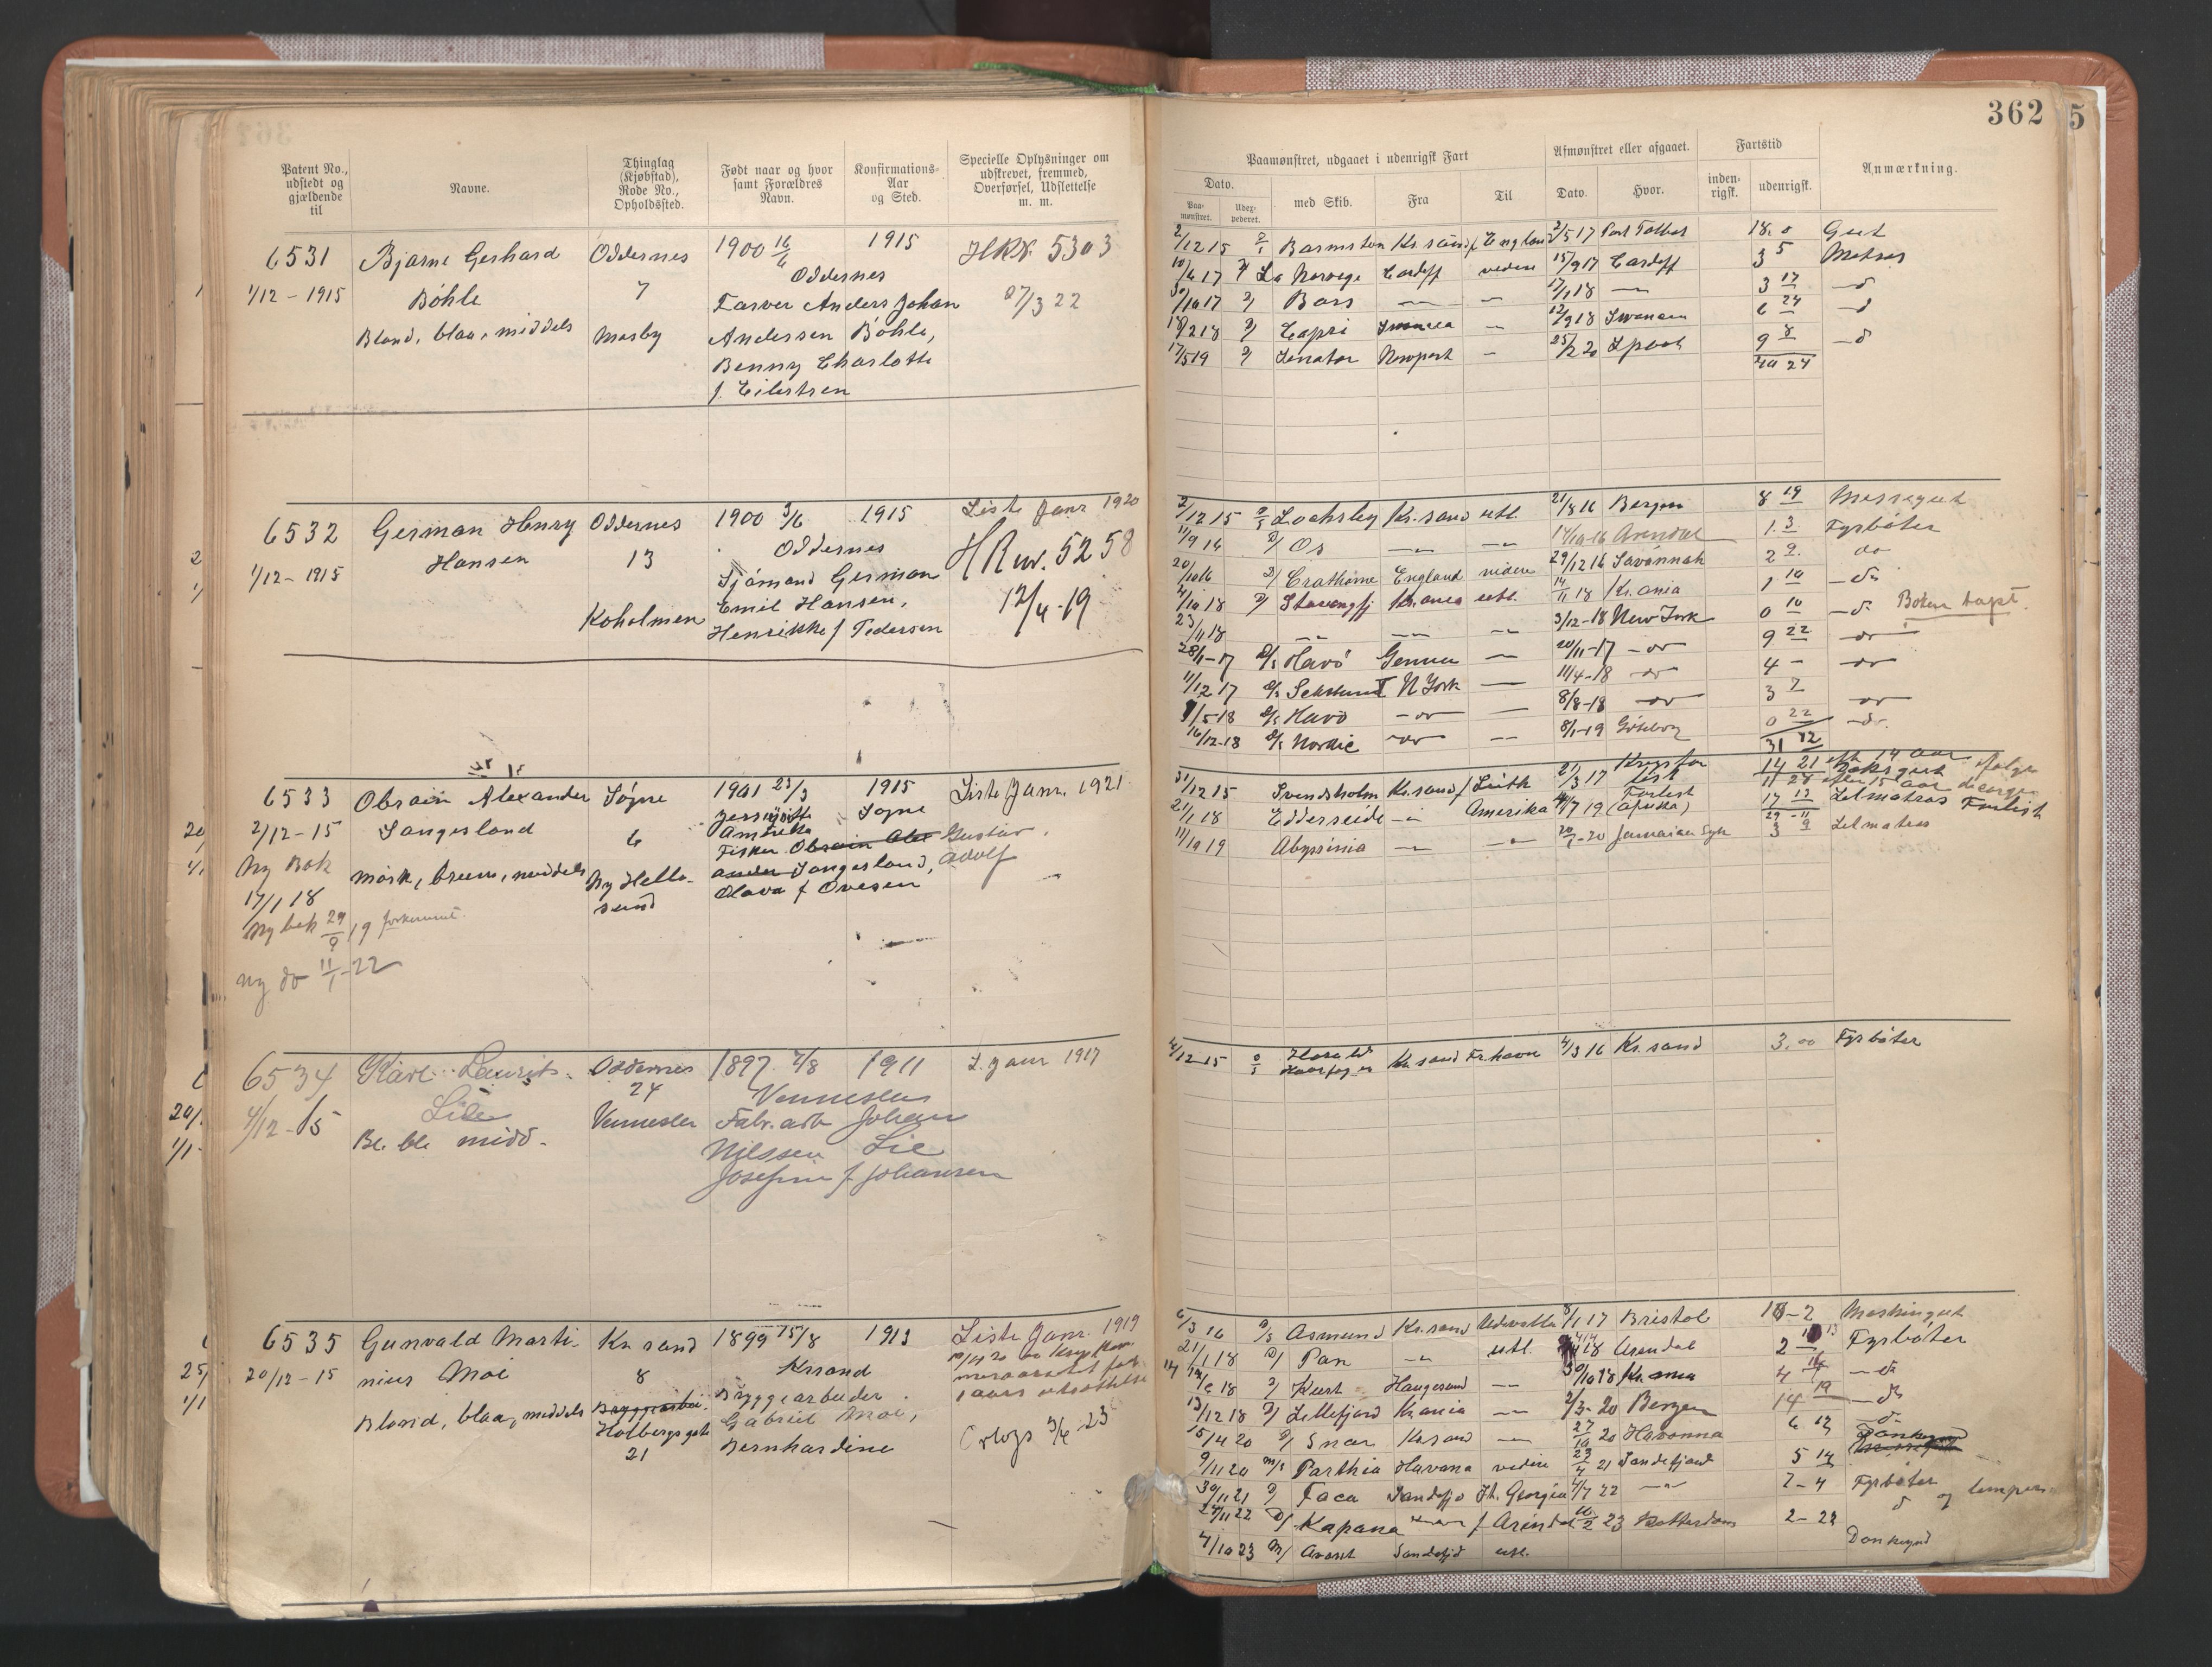 362
5
Patent No., udstedt og gjældende til
Navne.
Thinglag (Kjøbstad), Rode No., Opholdssted.
Født naar og hvor samt Forældres Navn.
Konfirmations-Aar og Sted.
Specielle Oplysninger om udskrevet, fremmed, Overførsel, Udslettelse m. m.
Paamønstret, udgaaet i udenrigsk Fart
Afmønstret eller afgaaet.
Fartstid
Anmærkning.
Dato.
Paa-mønstret.
Udex-pederet.
med Skib.
Fra
Til
Dato.
Hvor.
inden-rigsk.
udenrigsk.
6531 Bjarne Gerhard Oddernes 1900 16/6 1915 HRN. 5303
1/12 - 1915 Bøhle 7 Oddernes 27/3 22
Farver Anders Johan
Blond, blaa, middels Mosby Andersen Bøhle,
Benny Charlotte
f. Eilertsen
2/12 15 Barmston Kr.sand f England 2/5 17 Port Talbot 18.0 Gut
10/6 17 La Norvege Cardiff videre 15/9 17 Cardiff 3 5 Matros
30/10 17 Bass 17/1 18 3 17 - d
18/2 18 Capri Swansea 12/9 18 Swansea 6 24 - d
17/5 19 Senator Newport 25/2 20 Lpool 9 8 - d
40 24
6532 German Henry Oddernes 1900 3/6 1915 Liste Janr 1920
1/12 - 1915 Hansen 13 Oddernes HRuv. 5258
Sjømand German 12/4-19
Koholmen Emil Hansen,
Henrikke f Pedersen
2/12 15 Lochsley Kr.sand utl. 21/8 16 Bergen 8 19 Messegut
11/9 16 Os 14/10-16 Arendal 1.3. Fyrbøter
20/10 16 Crathorne England videre 29/12 16 Savannah 2 9. do
4/10 18 Stavangfj Kr.ania utl. 14/11 18 Kr.ania 1 10 - do
23/11 18 3/12-18 New York 0 10 - d. Boken tapt.
28/1-17 Havø Genua 20/11-17 - do 9 22 - do
11/12 17 Sekstant N York 11/4-18 - do 4 - - do
1/5-18 Havø - do 8/8-18 - do 3 7 - do
16/12-18 Nordic - do 8/1-19 Göteborg 0 22 - do.
31 12
6533 Obrain Alexander Søgne 1901 23/3 1915 Liste Janr. 1921.
2/12-15 Langesland 6 Amerika Søgne
Ny Bok Fisker Obrain Alexander Gustav
17/1 18 mørk, brun, middels Ny Hellesund Langesland, Adolf
Olava f Ovesen
Ny bok 29/9 19 forkommet.
ny do 11/1-22
31/12 15 Svendsholm Kr.sand f Leith 21/3 17 Krigsforlist 14 21 Dæksgut
21/1 18 Edderside Amerika 7 19 Forlist (Afrika) 17 13 Letmatros Forlist
11/10 19 Abyssinia 20/7-20 Jamaica Syk 3 9 Letmatros
6534 Karl Laurits Oddernes 1897 7/8 1911 L. Janr 1917
4/12-15 Lie 24 Vennesla
Bl. bl. midd. Vennesla Fabr.arb Johan
Nilssen Lie
Josefine f Johansen
4/12-15 Harald Haarfager Kr.sand Fr.havn 4/3 16 Kr.sand 3.00 Fyrbøter
6535 Gunvald Marti- Kr.sand 1899 15/8 1913 Liste Janr. 1919
20/12-15 nius Moi 8 Krsand
Bryggearbeider
Blond, blaa, middels Holbergsgate Gabriel Moi,
21 Bernhardine Orlogs 4/4 23
6/3 16 Asmund Kr.sand 8/1 17 Bristol 10-2 Maskingut
21/1 18 Pan utl. 18 Arendal 2 Fyrbøter
18 Kurt Haugesund 30/10 18 Kr.ania 4 - do
13/12 18 Lillefjord Kr.ania 2/3-20 Bergen 14 19 - do
15/4 20 Snar Kr.sand 27/10 20 Havanna 6 12 - d
9/11 20 Parthia Havana videre 23/4 21 Sandefjord 5 14 Donkeym
30/11 21 Faca Sandefjo St. Georgia 4/7 22 7-4 Fyrbøter
24/11 22 Kapana f Arendal 2 23 Rotterdam 2-23 d og lemper
4/10 23 Sandefjd utl. Donkeymd